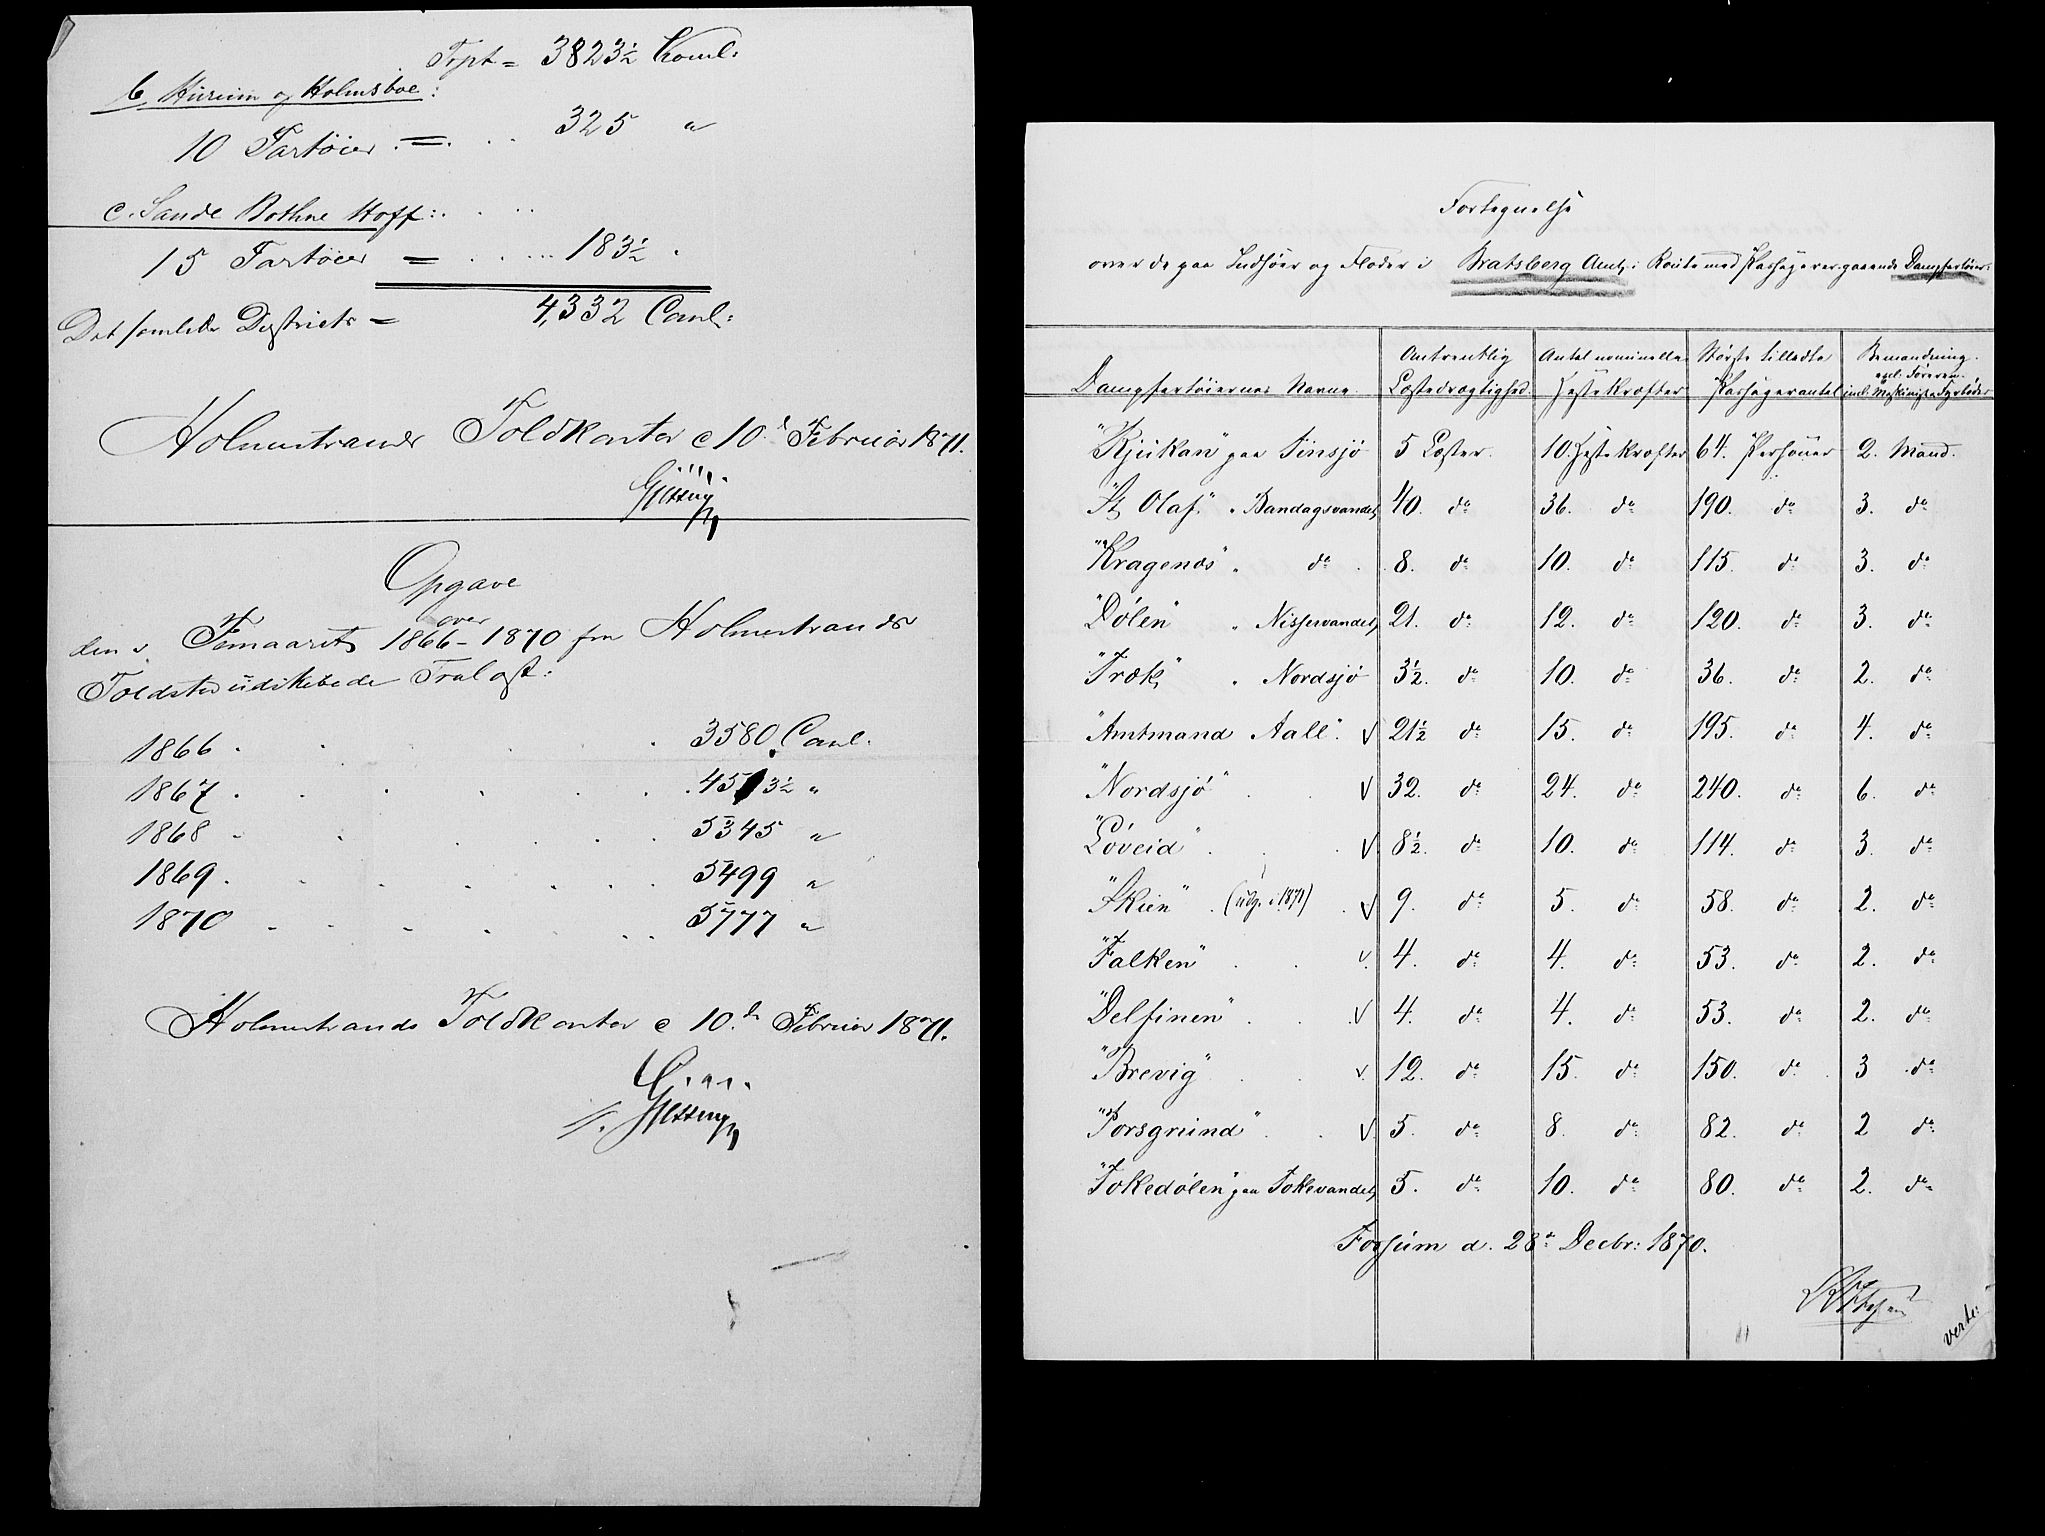 Trpt = 3823½ Coml:
b, Hurum og Holmsboe:
10 Fartøier = 325 "
c. Sande Bothne Hoff:
15 Fartøier = 183½
Det samlede District = 4,332 Coml:
Holmestrands Toldkontor d 10.d Februar 1871.
Gjessing
Opgave
over
den i Femaaret 1866-1870 fra Holmestrands
Toldsted udskibede Trælast:
1866 3580 Coml.
1867 4513½ "
1868 5345 "
1869 5499 "
1870 5777 "
Holmestrands Toldkontor d 10.d Februar 1871.
Gjessing
Fortegnelse
over de paa Indsøer og Floder i Bratsberg Amt i Route med Passagerer gaaende Dampfartøier:
Dampfartøiernes Navne. Omtrentlig Læstedrægtighed. Antal nominelle Hestekræfter Største tilladte Passagerantal Bemandning. excl. Føreren. incl. Maskinist & Fyrbøder
"Rjukan" paa Tinsjø 5 Læster. 10. Hestekræfter 64. Personer 2. Mand.
"St Olaf" " Bandagsvandet, 40. do 36. do 190. do 3. do
"Kragenæs" " do 8. do 10. do 115. do 3. do
"Dølen" " Nisservandet, 21. do 12. do 120. do 3. do
"Træk" " Nordsjø 3½. do 10. do 36. do 2. do
"Amtmand Aall". V 21½ do 15. do 195. do 4. do
"Nordsjø" V 32. do 24. do 240. do 6. do
"Løveid" V 8½. do 10. do 114. do 3. do
"Skien" (udg. i 1871) V 9. do 5. do 58. do 2. do
"Falken" V 4. do 4. do 53. do 2. do
"Delfinen" V 4. do 4. do 53. do 2. do
"Brevig" V 12. do 15. do 150. do 3 do
"Porsgrund" V 5. do 8. do 82. do 2 do
"Tokedølen" paa Tokevandet, 5. do 10. do 80. do 2. do
Fossum d. 28de Decbr: 1870.
verte: